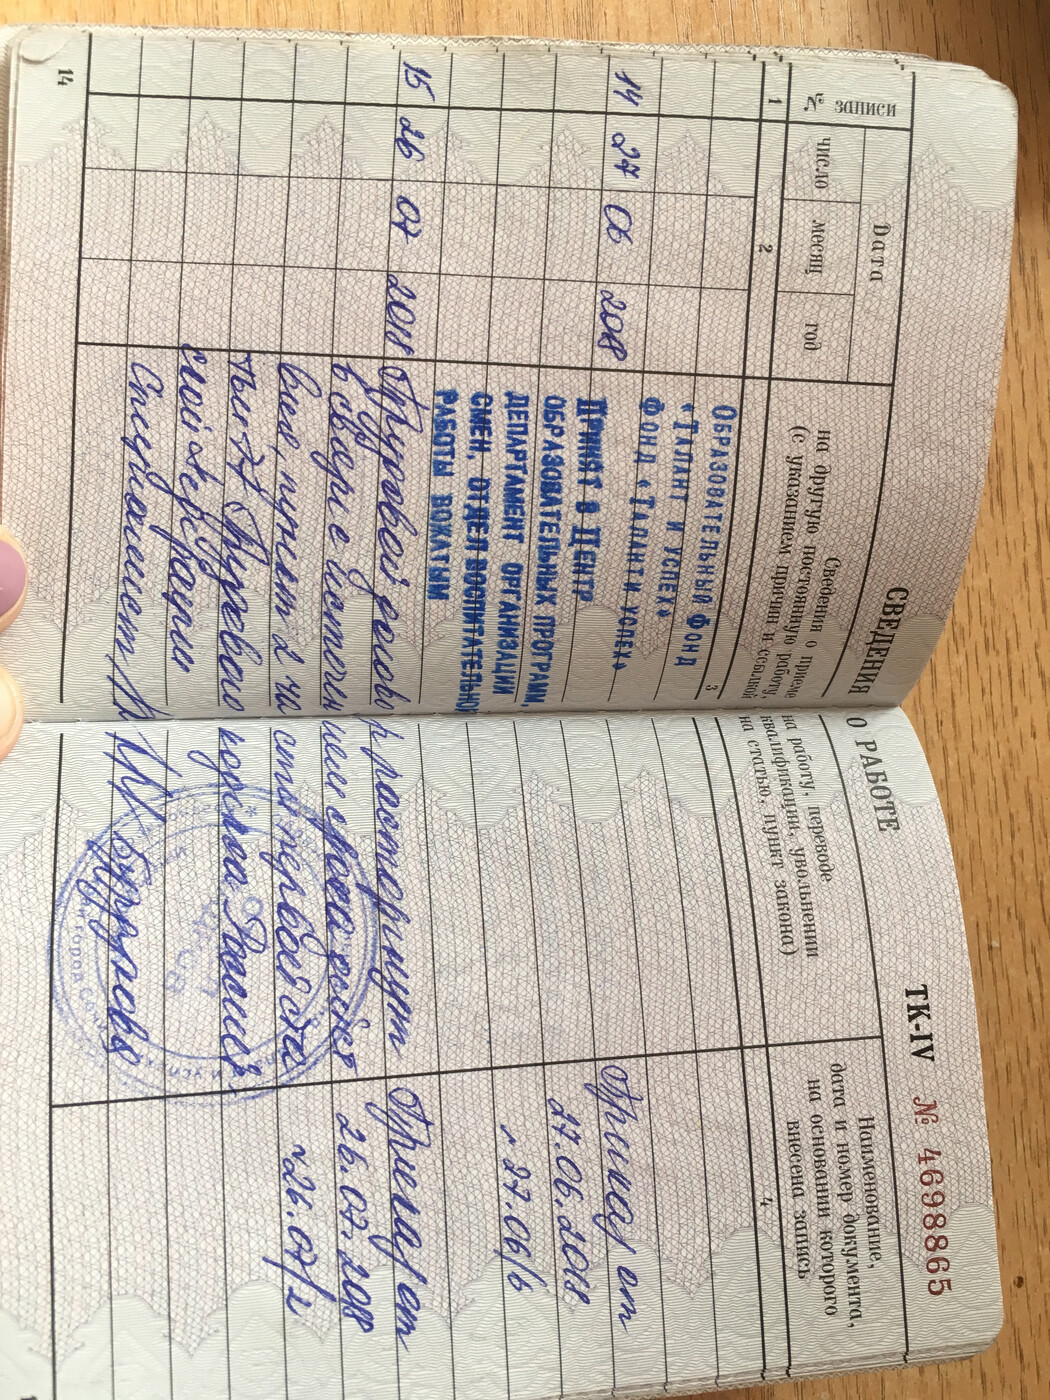 СВЕДЕНИЯ О РАБОТЕ
ТК-IV № 4698865
№ записи
Дата
число
месяц
год
Сведения о приеме на работу, переводе
на другую постоянную работу, квалификации, увольнении
(с указанием причин и ссылкой на статью, пункт закона)
Наименование,
дата и номер документа,
на основании которого
внесена запись
1 2 3 4
ОБРАЗОВАТЕЛЬНЫЙ ФОНД
«ТАЛАНТ И УСПЕХ»
ФОНД «ТАЛАНТ И УСПЕХ»
14 27 06 2018 ПРИНЯТ В ЦЕНТР Приказ от
ОБРАЗОВАТЕЛЬНЫХ ПРОГРАММ, 27.06.2018
ДЕПАРТАМЕНТ ОРГАНИЗАЦИИ 27.06/6
СМЕН, ОТДЕЛ ВОСПИТАТЕЛЬНОЙ
РАБОТЫ ВОЖАТЫМ
15 26 07 2018 Трудовой договор расторгнут Приказ от
в связи с истечением срока 26.07.2018
пункт 2 части первой статьи 26.07/2
77 Трудового кодекса Российской
Федерации
Специалист
14